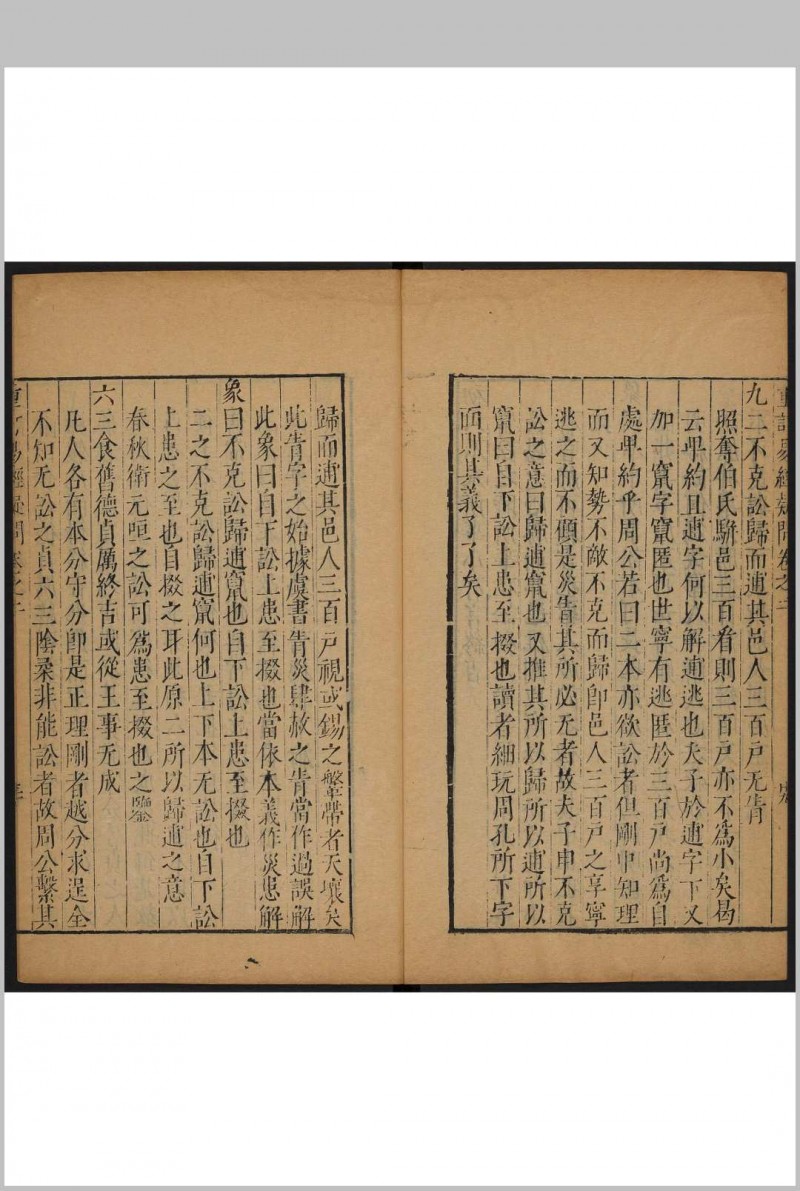 重訂易經疑問卷之二
九二不克訟歸而逋其邑人三百户无眚
照奪伯氏駢邑三百看則三百户亦不為小矣曷
云卑約且逋字何以解逋逃也夫子於逋字下又
加一竄字竄匿也世寧有逃匿於三百户尚為自
處卑約乎周公若曰二本亦欲訟者但剛中知理
而又知勢不敵不克而歸即邑人三百户之享寧
逃之而不顧是災眚其所必无者故夫子申不克
訟之意曰歸逋竄也又推其所以歸所以逋所以
竄曰自下訟上患至掇也讀者細玩周孔所下字
面則其義了了矣
歸而逋其邑人三百户視或錫之鞶帶者天壤矣
此眚字之始據虞書眚災肆赦之眚當作過誤解
此象曰自下訟上患至掇也當依本義作災患解
象曰不克訟歸逋竄也自下訟上患至掇也
二之不克訟歸逋竄何也上下本无訟也自下訟
上患之至也自掇之耳此原二所以歸逋之意
春秋衛元咺之訟可為患至掇也之
六三食舊德貞厲終吉或從王事无成
凡人各有本分守分即是正理剛者越分求逞全
不知无訟之貞六三陰柔非能訟者故周公繫其